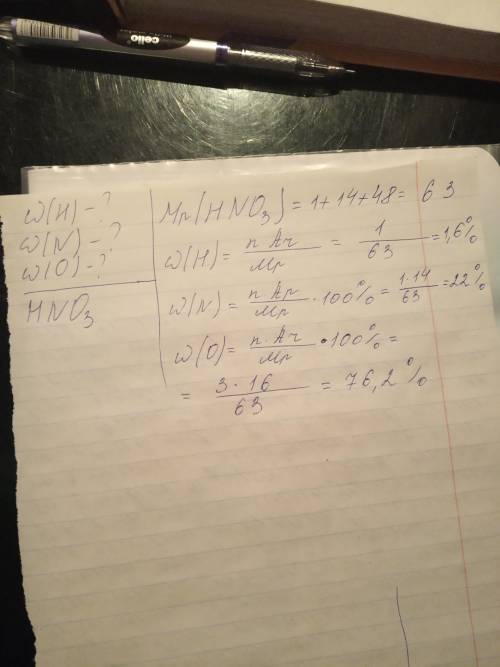 cello
ω(H) - ?
ω(N) - ?
ω(O) - ?
HNO₃
Mr(HNO₃) = 1 + 14 + 48 = 63
ω(H) = n Ar / Mr = 1 / 63 = 1,6%
ω(N) = n Ar / Mr · 100% = 1·14 / 63 = 22%
ω(O) = n · Ar / Mr · 100% =
= 3 · 16 / 63 = 76,2%